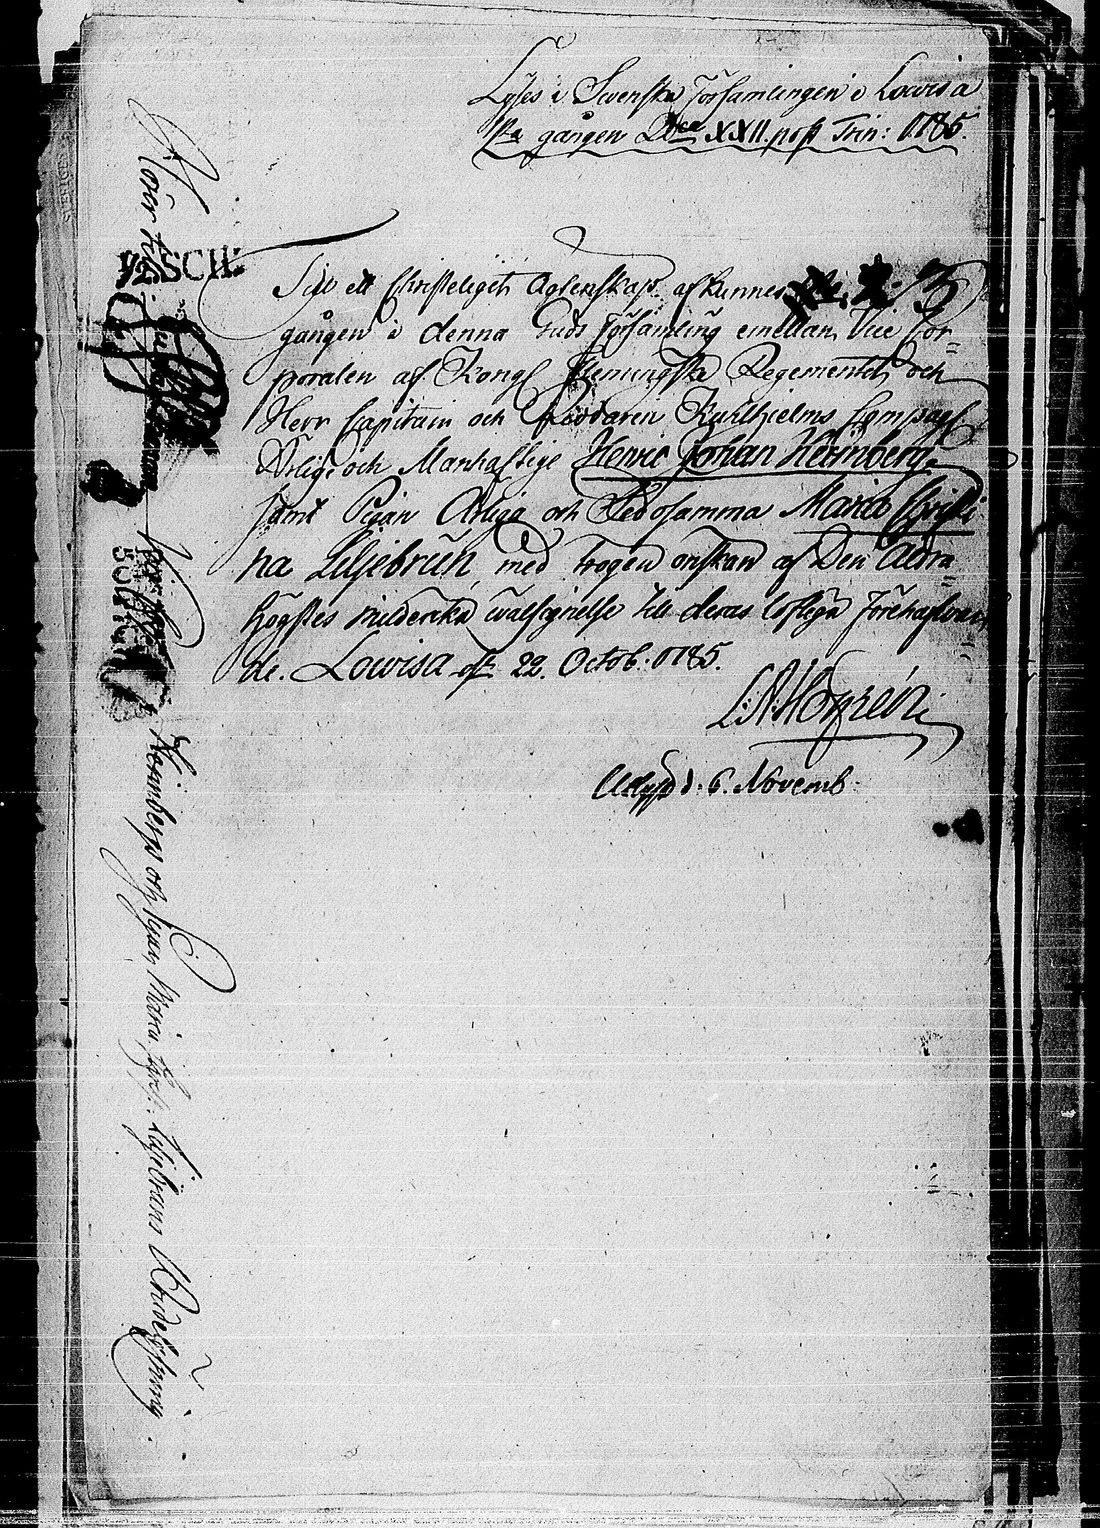 Lyses i Swenska Församlingen i Lowisa
1sta gången Dca XXII. post Trin: 1785.
Til ett Christeligit Ägtenskap afkunnes 3
gången i denna Guds Församling emellan Vice Cor-
poralen af Kongl Regementet och
Herr Capitain och Riddaren Kuhlhjelms Compagn
Ärlig och Manhaftige Henric Johan Heimberg
samt Pigan Ärliga och Sedosamma Maria Christi
na Liljebrun, med trogen önskan af Den Aldra
högstes milderika wälsignelse till deras lofliga förehafwan
de. Lowisa d 22. Octob: 1785.
Utlyst d: 6. Novemb
SCH:
Heimbergs och Pigan Maria Christ: Liljebruns